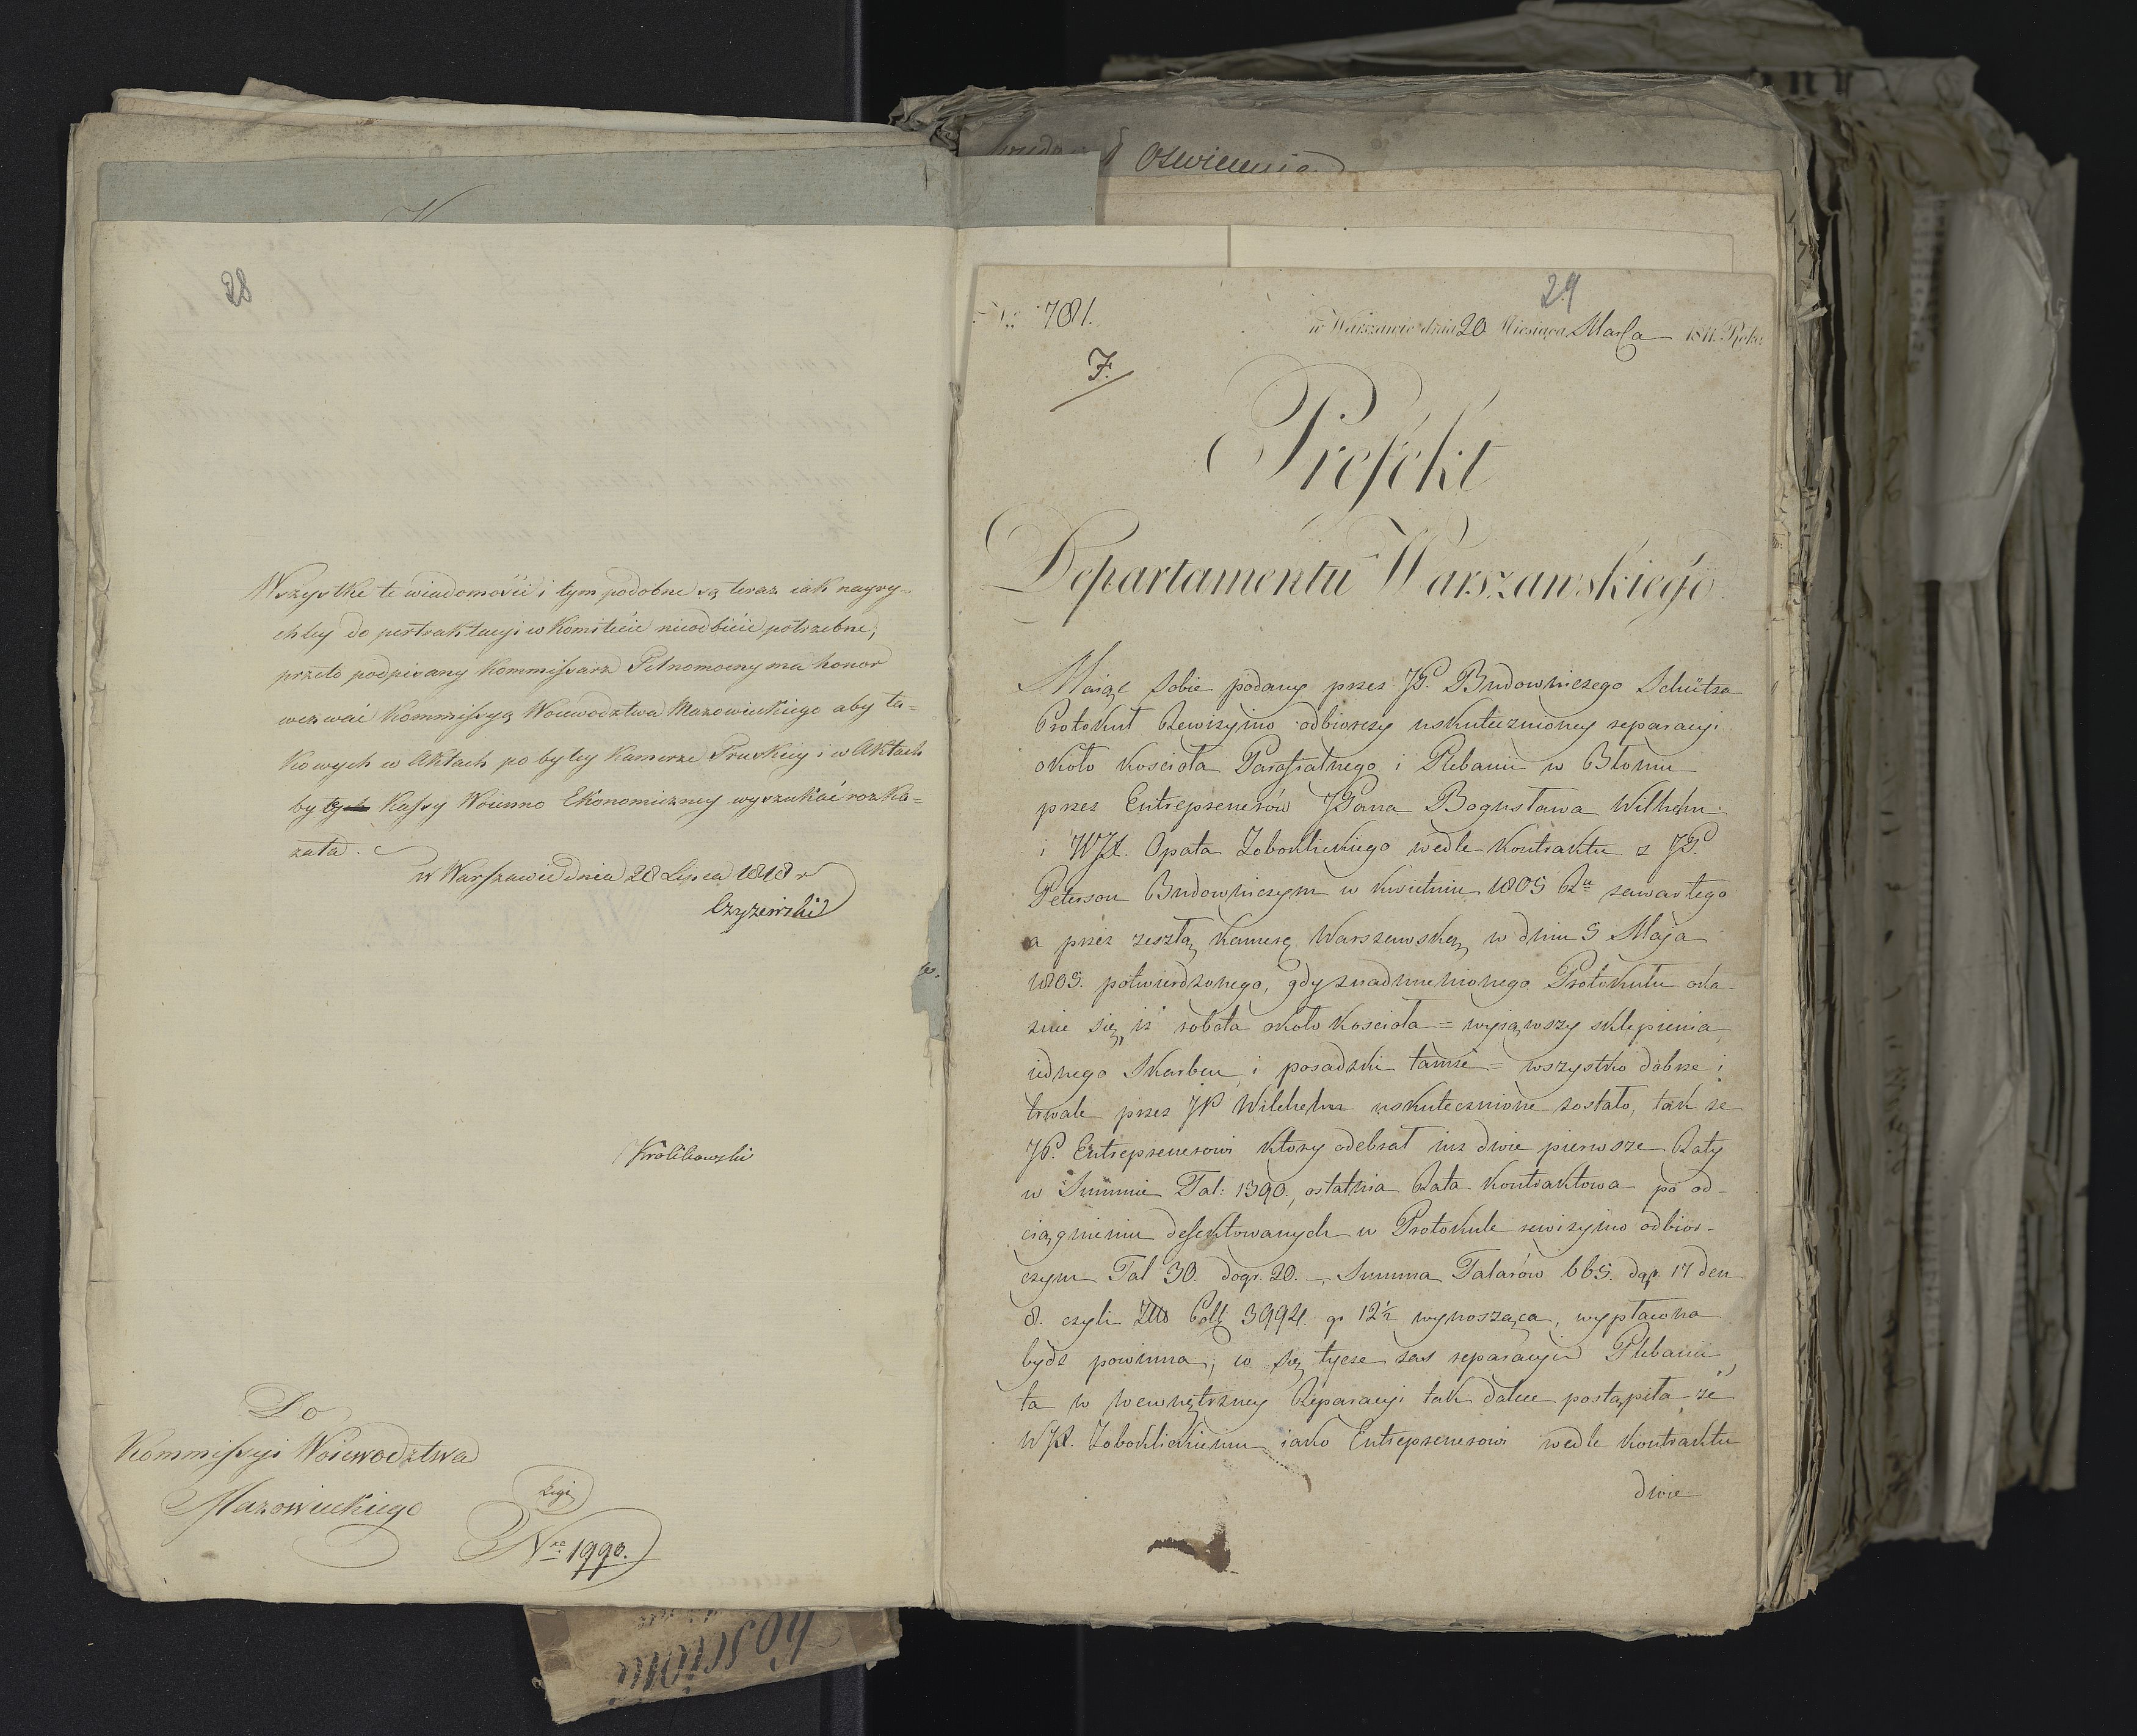 28
Wszystkie te wiadomości i tym podobne są teraz iak nayry-
chley do pertraktacyi w Komitecie nieodbicie potrzebne,
przeto podpisany Kommissarz Pełnomocny ma honor
wezwać Kommissyą Woiewodztwa Mazowieckiego aby ta-
kowych w Aktach po byłey Kamerze Pruskiey i w Aktach
byłey Kassy Woienno Ekonomiczney wyszukać rozka-
zała.
w Warszawie dnia 28 Lipca 1818 r
Czyżewski
Królikowski
Do
Kommissyi Woiewodztwa
Mazowieckiego
Nro 1990.
Oswiecenia
29
No 7081.
w Warszawie dnia 20 Miesiąca Marca 1811. Roku
F.
Prefekt
Departamentu Warszawskiego
Maiąc sobie podany przez JP. Budowniczego Schütza
Protokuł Rewizyino odbiorczy uskutecznioney reparacyi
około kościoła Parafialnego i Plebanii w Błoniu
przez Entreprenerów JPana Bogusława Wilhelm
i WJX. Opata Zoboklickiego wedle kontraktu z JP.
Peterson Budowniczym w kwietniu 1805 Ru zawartego
a przez zeszłą kamerę Warszawską w dniu 5 Maja
1805. potwierdzonego, gdy z nadmienionego Protokułu oka-
zuie się, iż robota około kościoła = wyiąwszy sklepienia
iednego Skarbcu, i posadzki tamże = wszystko dobrze i
trwale przez JP Wilhelm uskutecznione zostało, tak że
JP. Entreprenerowi który odebrał iuż dwie pierwsze Raty
w Summie Tal: 1390., ostatnia Rata kontraktowa po od-
ciągnieniu defektowanych w Protokule rewizyino odbior-
czym Tal 30. dogr. 20. –, Summa Talarów 665. dgr. 17 den
8. czyli Złło Pol: 3994. gr 12½ wynosząca, wypłacona
bydź powinna; co się tycze zaś reparacyi Plebanii,
ta w wewnętrzney Reparacyi tak dalece postąpiła, że
WJX. Zoboklickiemu iako Entreprenerowi wedle kontraktu
dwie